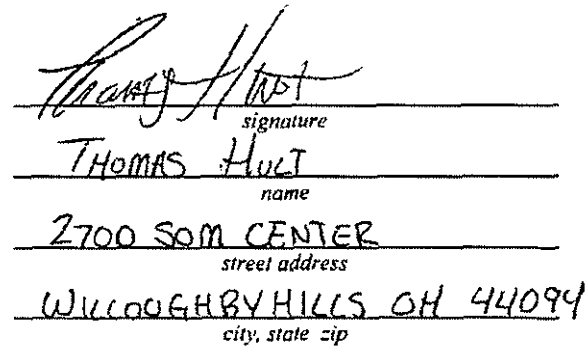 Thomas Hult
signature
THOMAS HULT
name
2700 SOM CENTER
street address
WILLOUGHBY HILLS OH 44094
city, state zip